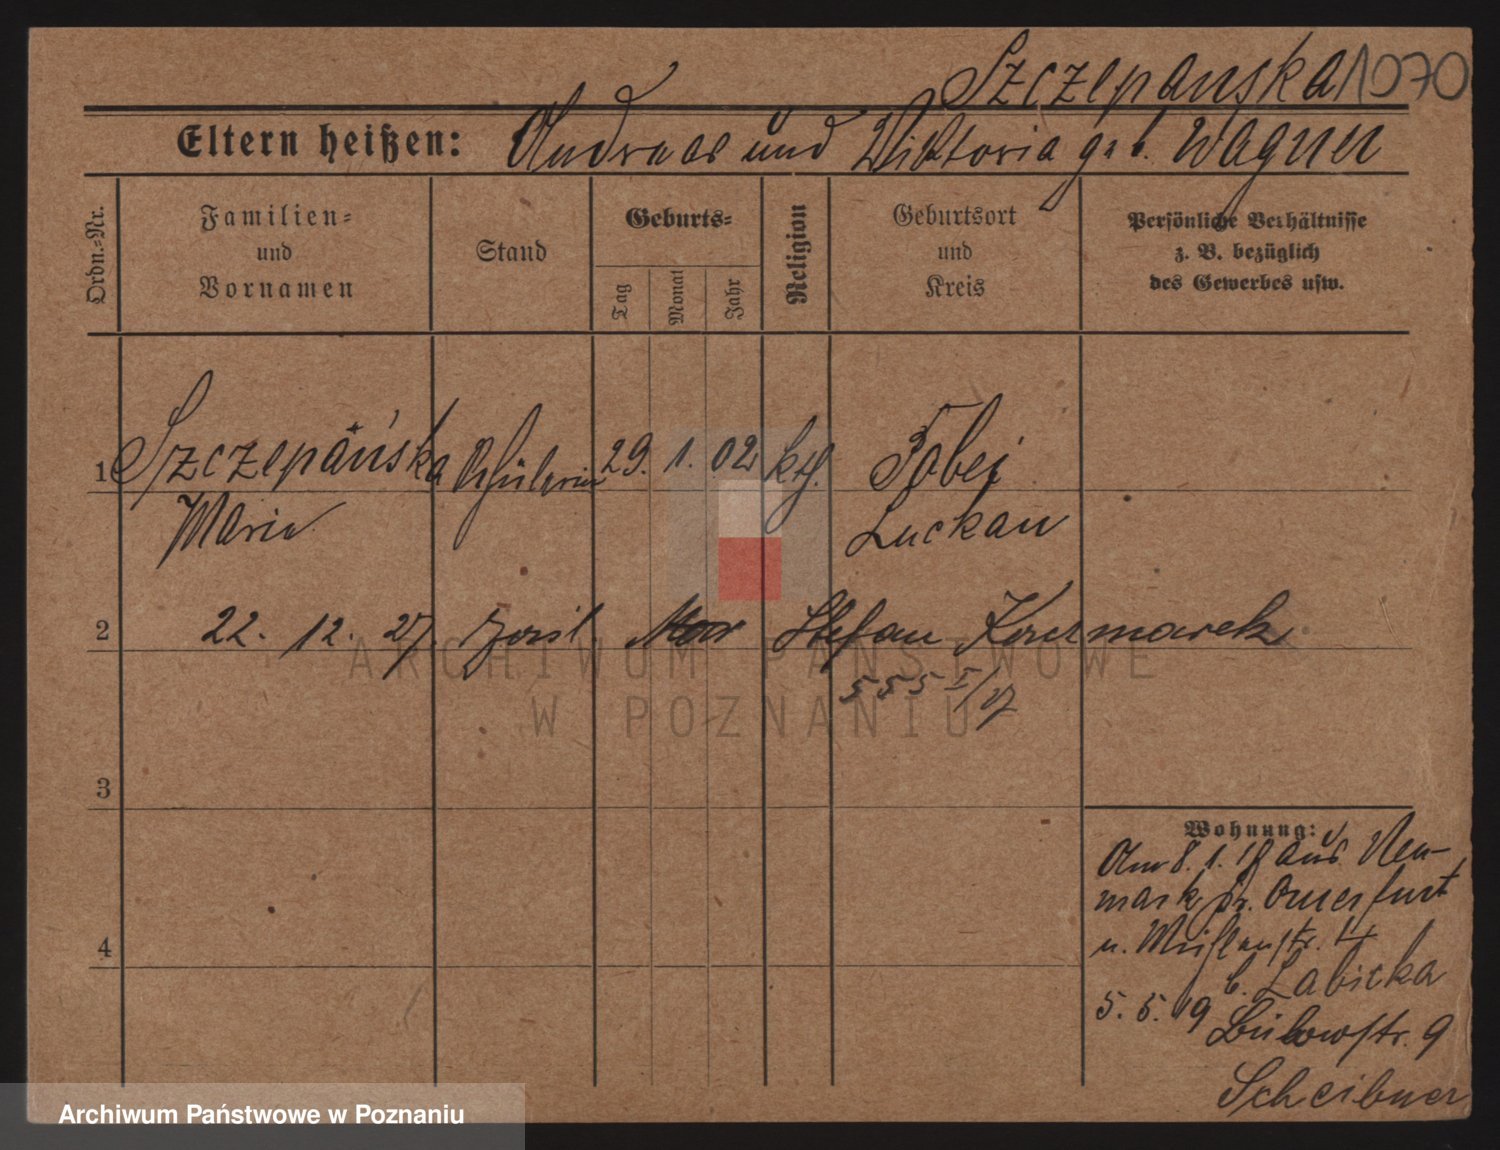 Szczepanska 1070
Eltern heißen: Andreas und Wiktoria geb. Wagner
Ordn.-Nr.
Familien-
und
Vornamen
Stand
Geburts-
Tag
Monat
Jahr
Religion
Geburtsort
und
Kreis
Persönliche Verhältnisse
z. B. bezüglich
des Gewerbes usw.
1 Szczepańska Schülerin 29. 1. 02 kth.
Maria Luckau
2 22. 12. 27. Stefan
555
ARCHIWUM PAŃSTWOWE
W POZNANIU
3
4
Wohnung:
Am 8. 1. 19 aus Neu-
mark
4
b. Labicka
5. 5. 19 Bülowstr. 9
Scheibner
Archiwum Państwowe w Poznaniu